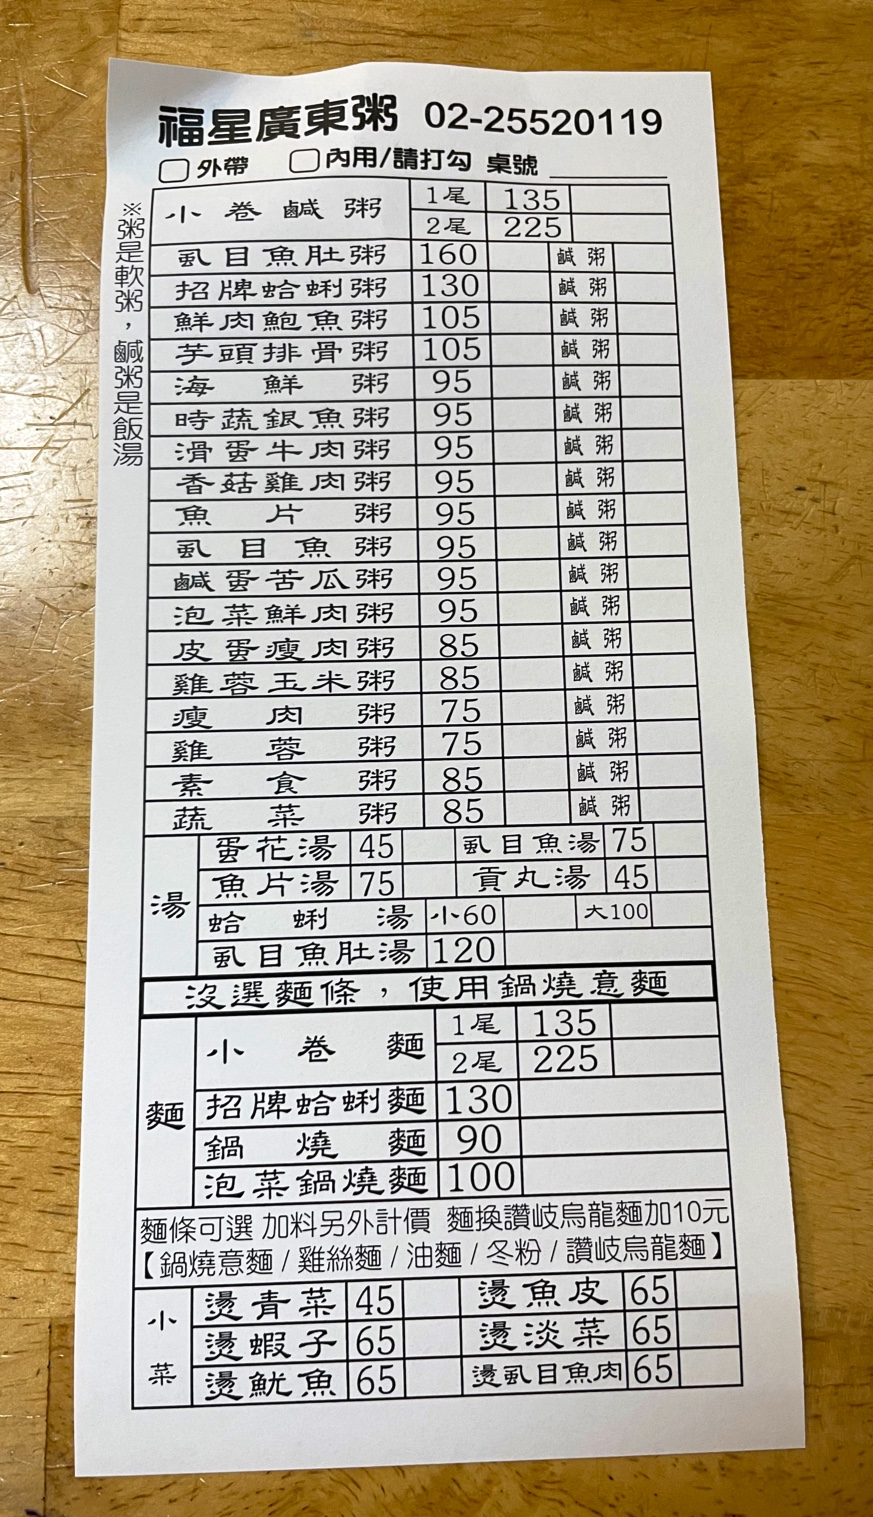 福星廣東粥 02-25520119
外帶 內用/請打勾 桌號
※粥是軟粥，鹹粥是飯湯
小卷鹹粥 1尾 135
2尾 225
虱目魚肚粥 160 鹹粥
招牌蛤蜊粥 130 鹹粥
鮮肉鮑魚粥 105 鹹粥
芋頭排骨粥 105 鹹粥
海鮮粥 95 鹹粥
時蔬銀魚粥 95 鹹粥
滑蛋牛肉粥 95 鹹粥
香菇雞肉粥 95 鹹粥
魚片粥 95 鹹粥
虱目魚粥 95 鹹粥
鹹蛋苦瓜粥 95 鹹粥
泡菜鮮肉粥 95 鹹粥
皮蛋瘦肉粥 85 鹹粥
雞蓉玉米粥 85 鹹粥
瘦肉粥 75 鹹粥
雞蓉粥 75 鹹粥
素食粥 85 鹹粥
蔬菜粥 85 鹹粥
湯
蛋花湯 45 虱目魚湯 75
魚片湯 75 貢丸湯 45
蛤蜊湯 小60 大100
虱目魚肚湯 120
沒選麵條，使用鍋燒意麵
麵
小卷麵 1尾 135
2尾 225
招牌蛤蜊麵 130
鍋燒麵 90
泡菜鍋燒麵 100
麵條可選 加料另外計價 麵換讚岐烏龍麵加10元
【鍋燒意麵/雞絲麵/油麵/冬粉/讚岐烏龍麵】
小菜
燙青菜 45 燙魚皮 65
燙蝦子 65 燙淡菜 65
燙魷魚 65 燙虱目魚肉 65